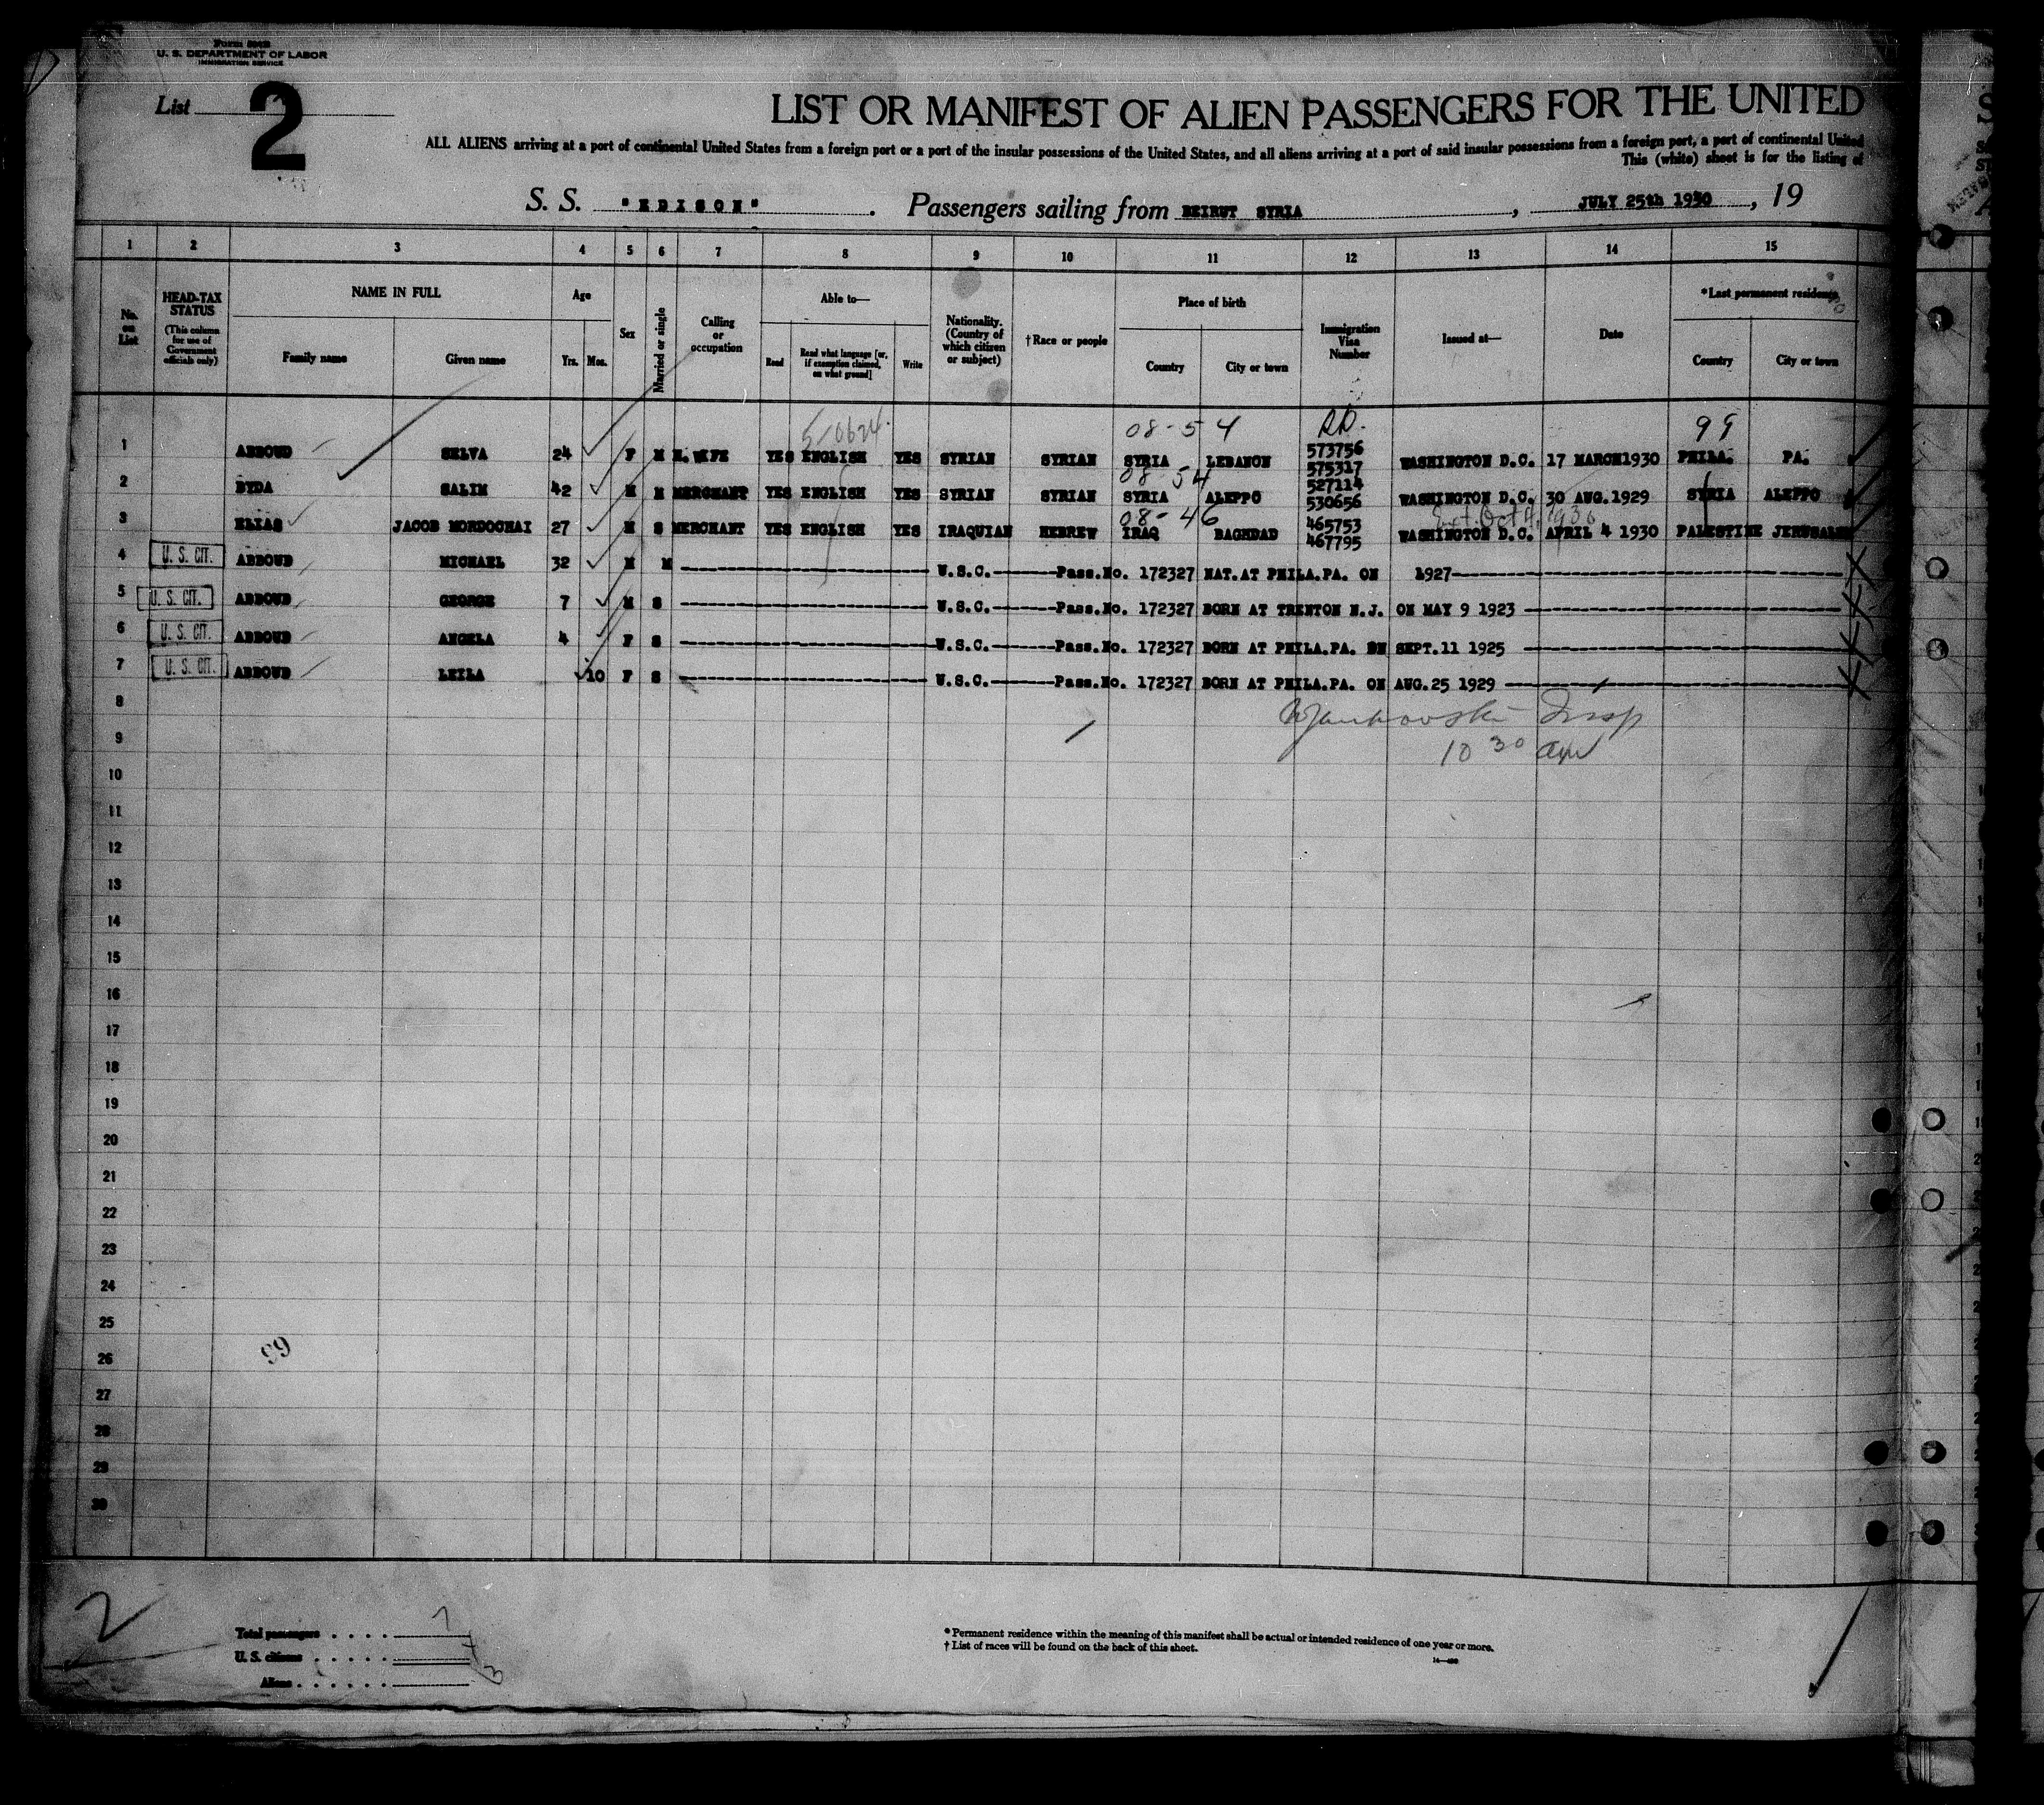 U. S. DEPARTMENT OF LABOR
IMMIGRATION SERVICE
List 2
LIST OR MANIFEST OF ALIEN PASSENGERS FOR THE UNITED
ALL ALIENS arriving at a port of continental United States from a foreign port or a port of the insular possessions of the United States, and all aliens arriving at a port of said insular possessions from a foreign port, a port of continental United
This (white) sheet is for the listing of
S. S. "EDISON". Passengers sailing from BEIRUT SYRIA, JULY 25th 1930, 19
1 2 3 4 5 6 7 8 9 10 11 12 13 14 15
No. on List
HEAD-TAX STATUS
(This column for use of Government officials only)
NAME IN FULL
Family name Given name
Age
Yrs. Mos.
Sex
Married or single
Calling or occupation
Able to—
Read
Read what language [or, if exemption claimed, on what ground]
Write
Nationality. (Country of which citizen or subject)
†Race or people
Place of birth
Country City or town
Immigration Visa Number
Issued at—
Date
*Last permanent residence
Country City or town
08-54 99
1 ABBOUD SELVA 24 F M H. WIFE YES ENGLISH YES SYRIAN SYRIAN SYRIA LEBANON 573756 575317 WASHINGTON D.C. 17 MARCH1930 PHILA. PA.
08-54
2 BYDA SALIM 42 M M MERCHANT YES ENGLISH YES SYRIAN SYRIAN SYRIA ALEPPO 527114 530656 WASHINGTON D.C. 30 AUG.1929 SYRIA ALEPPO
08-46 Ext. Oct 4, 1930
3 ELIAS JACOB MORDOCHAI 27 M S MERCHANT YES ENGLISH YES IRAQUIAN HEBREW IRAQ BAGHDAD 465753 467795 WASHINGTON D.C. APRIL 4 1930 PALESTINE JERUSALEM
4 U. S. CIT. ABBOUD MICHAEL 32 M M U.S.C. Pass.No. 172327 NAT.AT PHILA.PA. ON 1927
5 U. S. CIT. ABBOUD GEORGE 7 M S U.S.C. Pass.No. 172327 BORN AT TRENTON N.J. ON MAY 9 1923
6 U. S. CIT. ABBOUD ANGELA 4 F S U.S.C. Pass.No. 172327 BORN AT PHILA.PA. ON SEPT.11 1925
7 U. S. CIT. ABBOUD LEILA 10 F S U.S.C. Pass.No. 172327 BORN AT PHILA.PA. ON AUG.25 1929
8
Insp
9
10 30 am
10
11
12
13
14
15
16
17
18
19
20
21
22
23
24
25
26
99
27
28
29
30
2
Total passengers . . . . 7
U. S. citizens . . . . . 4
Aliens . . . . . . 3
* Permanent residence within the meaning of this manifest shall be actual or intended residence of one year or more.
† List of races will be found on the back of this sheet.